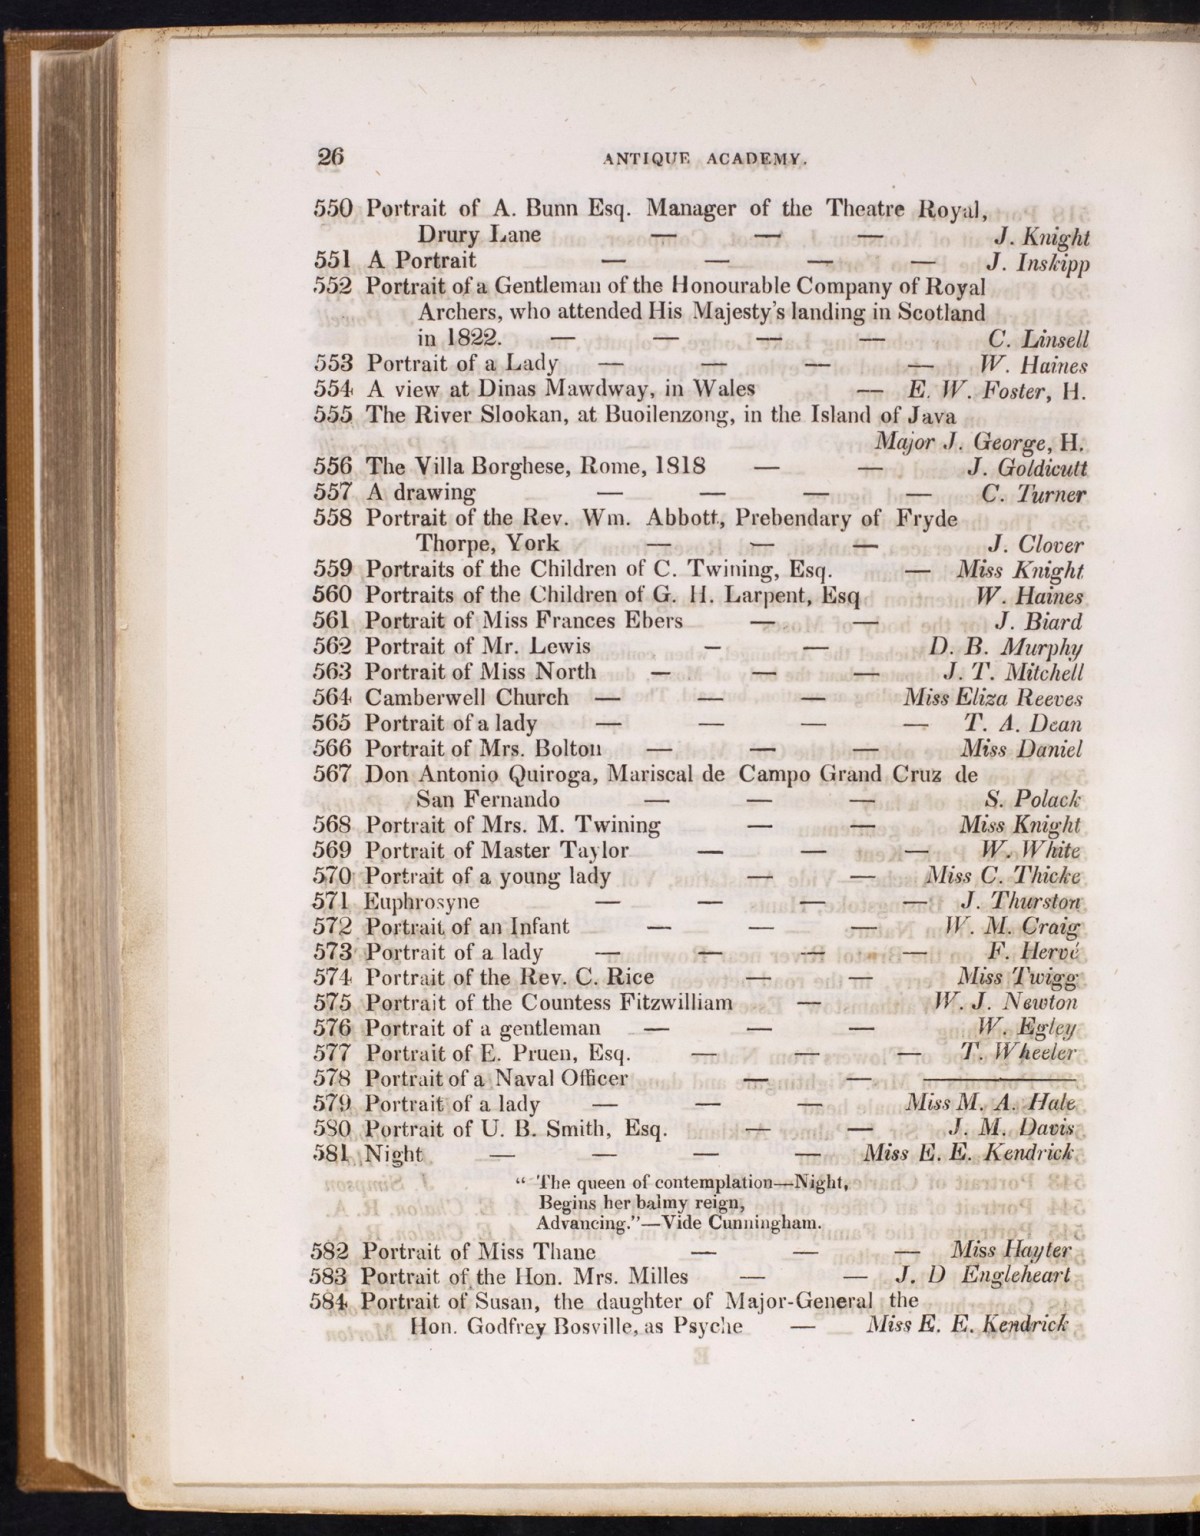 26 ANTIQUE ACADEMY.
550 Portrait of A. Bunn Esq. Manager of the Theatre Royal,
Drury Lane — — — J. Knight
551 A Portrait — — — — J. Inskipp
552 Portrait of a Gentleman of the Honourable Company of Royal
Archers, who attended His Majesty's landing in Scotland
in 1822. — — — — C. Linsell
553 Portrait of a Lady — — — — W. Haines
554 A view at Dinas Mawdway, in Wales — E. W. Foster, H.
555 The River Slookan, at Buoilenzong, in the Island of Java
Major J. George, H.
556 The Villa Borghese, Rome, 1818 — — J. Goldicutt
557 A drawing — — — — C. Turner
558 Portrait of the Rev. Wm. Abbott, Prebendary of Fryde
Thorpe, York — — — J. Clover
559 Portraits of the Children of C. Twining, Esq. — Miss Knight
560 Portraits of the Children of G. H. Larpent, Esq W. Haines
561 Portrait of Miss Frances Ebers — — J. Biard
562 Portrait of Mr. Lewis — — D. B. Murphy
563 Portrait of Miss North — — — J. T. Mitchell
564 Camberwell Church — — — Miss Eliza Reeves
565 Portrait of a lady — — — — T. A. Dean
566 Portrait of Mrs. Bolton — — — Miss Daniel
567 Don Antonio Quiroga, Mariscal de Campo Grand Cruz de
San Fernando — — — S. Polack
568 Portrait of Mrs. M. Twining — — Miss Knight
569 Portrait of Master Taylor — — — W. White
570 Portrait of a young lady — — Miss C. Thicke
571 Euphrosyne — — — — J. Thurston
572 Portrait of an Infant — — — W. M. Craig
573 Portrait of a lady — — — — F. Hervé
574 Portrait of the Rev. C. Rice — — Miss Twigg
575 Portrait of the Countess Fitzwilliam — W. J. Newton
576 Portrait of a gentleman — — — W. Egley
577 Portrait of E. Pruen, Esq. — — — T. Wheeler
578 Portrait of a Naval Officer — — ———
579 Portrait of a lady — — — Miss M. A. Hale
580 Portrait of U. B. Smith, Esq. — — J. M. Davis
581 Night — — — — Miss E. E. Kendrick
"The queen of contemplation—Night,
Begins her balmy reign,
Advancing."—Vide Cunningham.
582 Portrait of Miss Thane — — — Miss Hayter
583 Portrait of the Hon. Mrs. Milles — — J. D Engleheart
584 Portrait of Susan, the daughter of Major-General the
Hon. Godfrey Bosville, as Psyche — Miss E. E. Kendrick